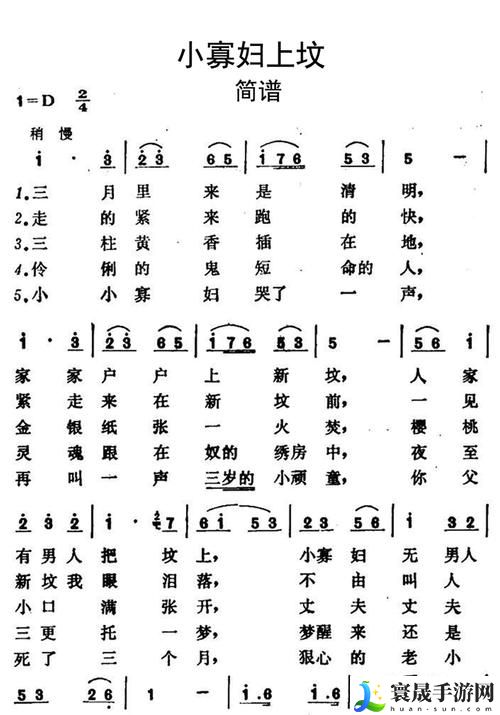 小寡妇上坟
简谱
1=D 2/4
稍慢
i · 3 | 2 3 6 5 | i 7 6 5 3 | 5 - |
1.三月里来是清明，
2.走的紧来跑的快，
3.三柱黄香插在地，
4.伶俐的鬼短命的人，
5.小小寡妇哭了一声，
i · 3 | 2 3 6 5 | i 7 6 5 3 | 5 - | 6 2 i |
家家户户上新坟，人家
紧走来在新坟前，一见
金银纸张一火焚，樱桃
灵魂跟在奴的绣房中，夜至
再叫一声三岁的小顽童，你父
2 3 2 3 | 5 3 2 | 1 - | 2 7 | 6 i 5 3 | 5 3 2 5 | 1 3 2 |
有男人把坟上，小寡妇无男人
新坟我眼泪落，不由叫人
小口满张开，丈夫丈夫
三更托一梦，梦醒来还是
死了三个月，狠心的老小
5 3 5 3 | 2 6 | 1 - | i · 6
寰晟手游网
huan-sun.com